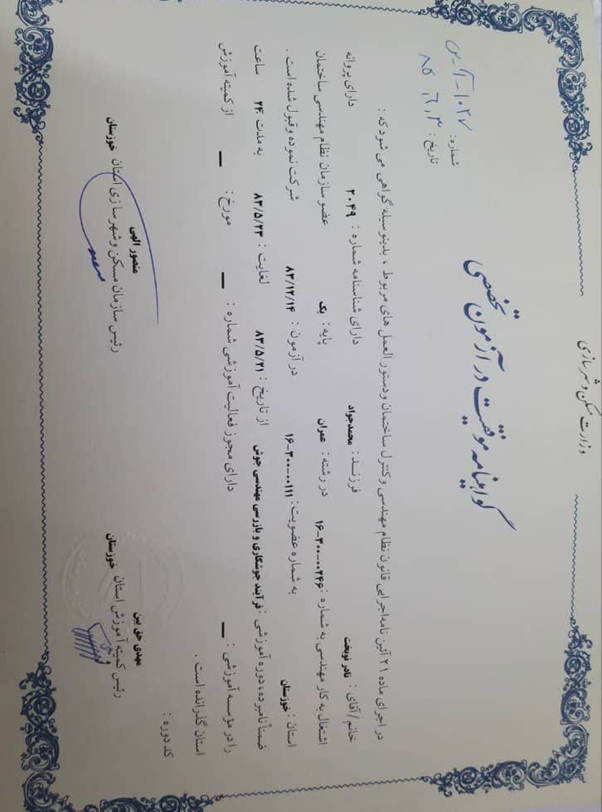 وزارت مسکن و شهرسازی
گواهینامه موفقیت در آزمون تخصصی
شماره:
تاریخ: ۸۵,۶,۳
در اجرای ماده ۲۱ آئین نامه اجرایی قانون نظام مهندسی و کنترل ساختمان و دستورالعمل های مربوط، بدینوسیله گواهی می شود که:
خانم/آقای: نادر نوبخت فرزند: محمدجواد دارای شناسنامه شماره: ۲۰۴۹ دارای پروانه
اشتغال به کار مهندسی به شماره: ۱۶-۳۰۰-۰۰۲۴۶ در رشته: عمران پایه: یک عضو سازمان نظام مهندسی ساختمان
استان: خوزستان به شماره عضویت: ۱۶-۳۰۰-۰۰۱۱۱ در آزمون: ۸۳/۱۲/۱۴ شرکت نموده و قبول شده است.
ضمناً نامبرده، دوره آموزشی: فرآیند جوشکاری و بازرسی مهندسی جوش از تاریخ: ۸۳/۵/۲۱ لغایت: ۸۳/۵/۲۳ به مدت ۲۴ ساعت
را در مؤسسه آموزشی: — دارای مجوز فعالیت آموزشی شماره: — مورخ: — از کمیته آموزش
استان گذرانده است.
کد دوره:
مهدی حق بین
رئیس کمیته آموزش استان خوزستان
منصور الهی
رئیس سازمان مسکن و شهرسازی استان خوزستان